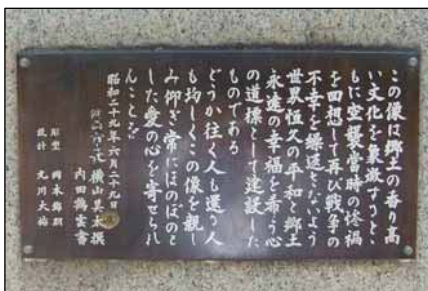 この像は郷土の香り高
い文化を象徴すると、
もに空襲当時の惨禍
を回想して再び戦争の
不幸を繰返さないよう
世界恒久の平和と郷土
永遠の幸福を希う心
の道標として建設した
ものである
どうか往く人も還る人
も均しくこの像を親し
み仰ぎ常にほのぼのと
した愛の心を寄せられ
んことを
昭和二十九年六月二十九日
横山昊太撰
内田鶴雲書
彫塑 岡本錦朋
設計 元川大祐